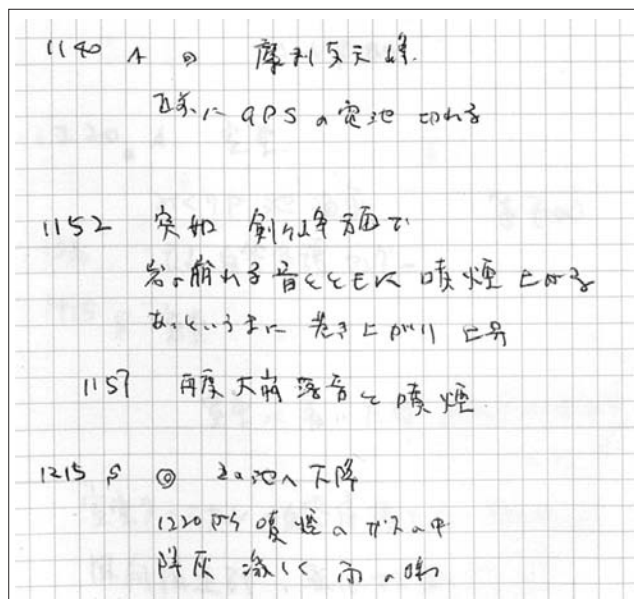 1140 A ◎ 摩利支天峰
直前に GPSの電池 切れる
1152 突如 剣ヶ峰方面で
岩の崩れる音とともに 噴煙上がる
あっというまに 巻き上がり 上昇
1157 再度大崩落音と噴煙
1215 S ◎ 三の池へ下降
1220から噴煙のガスの中
降灰激しく 雨の